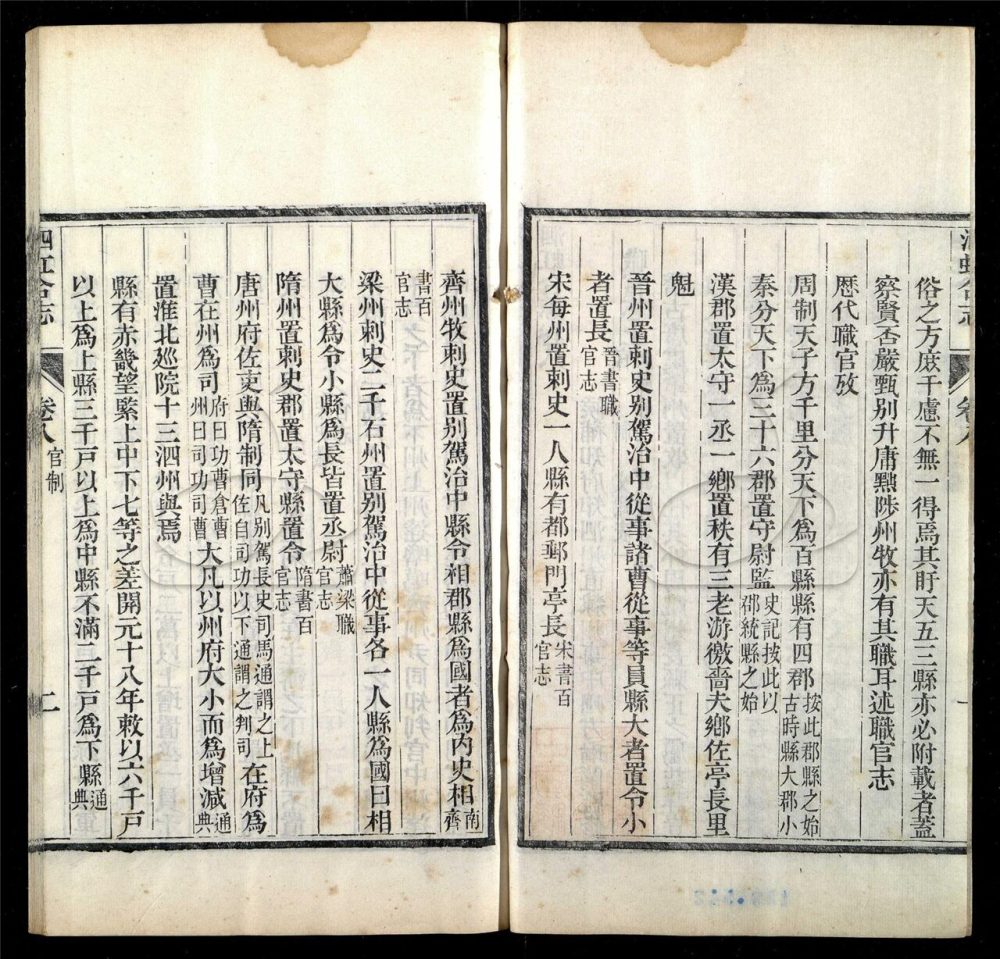 俗之方庶千慮不無一得焉其盱天五三縣亦必附載者蓋
察賢否嚴甄別升庸黜陟州牧亦有其職耳述職官志
歷代職官攷
周制天子方千里分天下為百縣縣有四郡按此郡縣之始古時縣大郡小
秦分天下為三十六郡置守尉監史記按此以郡統縣之始
漢郡置太守一丞一鄉置秩有三老游徼嗇夫鄉佐亭長里
魁
晉州置刺史別駕治中從事諸曹從事等員縣大者置令小
者置長晉書職官志
宋每州置刺史一人縣有都郵門亭長宋書百官志
齊州牧刺史置別駕治中縣令相郡縣為國者為內史相南齊
書百官志
梁州刺史二千石州置別駕治中從事各一人縣為國曰相
大縣為令小縣為長皆置丞尉蕭梁職官志
隋州置刺史郡置太守縣置令隋書百官志
唐州府佐吏與隋制同凡別駕長史司馬通謂之上佐自司功以下通謂之判司在府為
曹在州為司府曰功曹倉曹州曰司功司曹大凡以州府大小而為增減通典
置淮北巡院十三泗州與焉
縣有赤畿望緊上中下七等之差開元十八年敕以六千戶
以上為上縣三千戶以上為中縣不滿二千戶為下縣通典
泗虹合志
卷八
官制
二